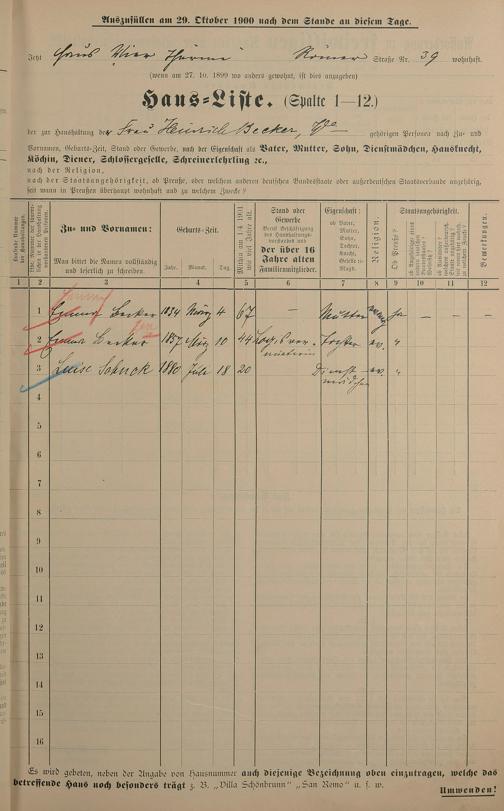 Auszufüllen am 29. Oktober 1900 nach dem Stande an diesem Tage.
Jetzt Haus Vier Thürme Römer Straße Nr. 39 wohnhaft.
(wenn am 27. 10. 1899 wo anders gewohnt, ist dies anzugeben)
Haus-Liste. (Spalte 1—12.)
der zur Haushaltung der Frau Heinrich Becker, We gehörigen Personen nach Zu- und
Vornamen, Geburts-Zeit, Stand oder Gewerbe, nach der Eigenschaft als Vater, Mutter, Sohn, Dienstmädchen, Hausknecht,
Köchin, Diener, Schlossergeselle, Schreinerlehrling ꝛc.,
nach der Religion,
nach der Staatsangehörigkeit, ob Preuße, oder welchem anderen deutschen Bundesstaate oder außerdeutschen Staatsverbande angehörig,
seit wann in Preußen überhaupt wohnhaft und zu welchem Zwecke?
Zu- und Vornamen:
Man bittet die Namen vollständig
und leserlich zu schreiben.
Geburts-Zeit.
Jahr. Monat. Tag.
Mithin am 1/4 1901
wie viel Jahre alt.
Stand oder
Gewerbe
der über 16
Jahre alten
Familienmitglieder.
Eigenschaft:
ob Vater,
Mutter,
Sohn,
Tochter,
Knecht,
Geselle o.
Magd.
Religion.
Staatsangehörigkeit.
Ob Preuße?
Bemerkungen.
1 2 3 4 5 6 7 8 9 10 11 12
1 Becker 1834 März 4 67 — Mutter ja — — —
2 Becker 1857 März 10 44 Tochter ev. "
3 Luise Schuck 1880 Juli 18 20 Dienst- ev. "
mädchen
4
5
6
7
8
9
10
11
12
13
14
15
16
Es wird gebeten, neben der Angabe von Hausnummer auch diejenige Bezeichnung oben einzutragen, welche das
betreffende Haus noch besonders trägt z. B. „Villa Schönbrunn" „San Remo" u. s. w.
Umwenden!